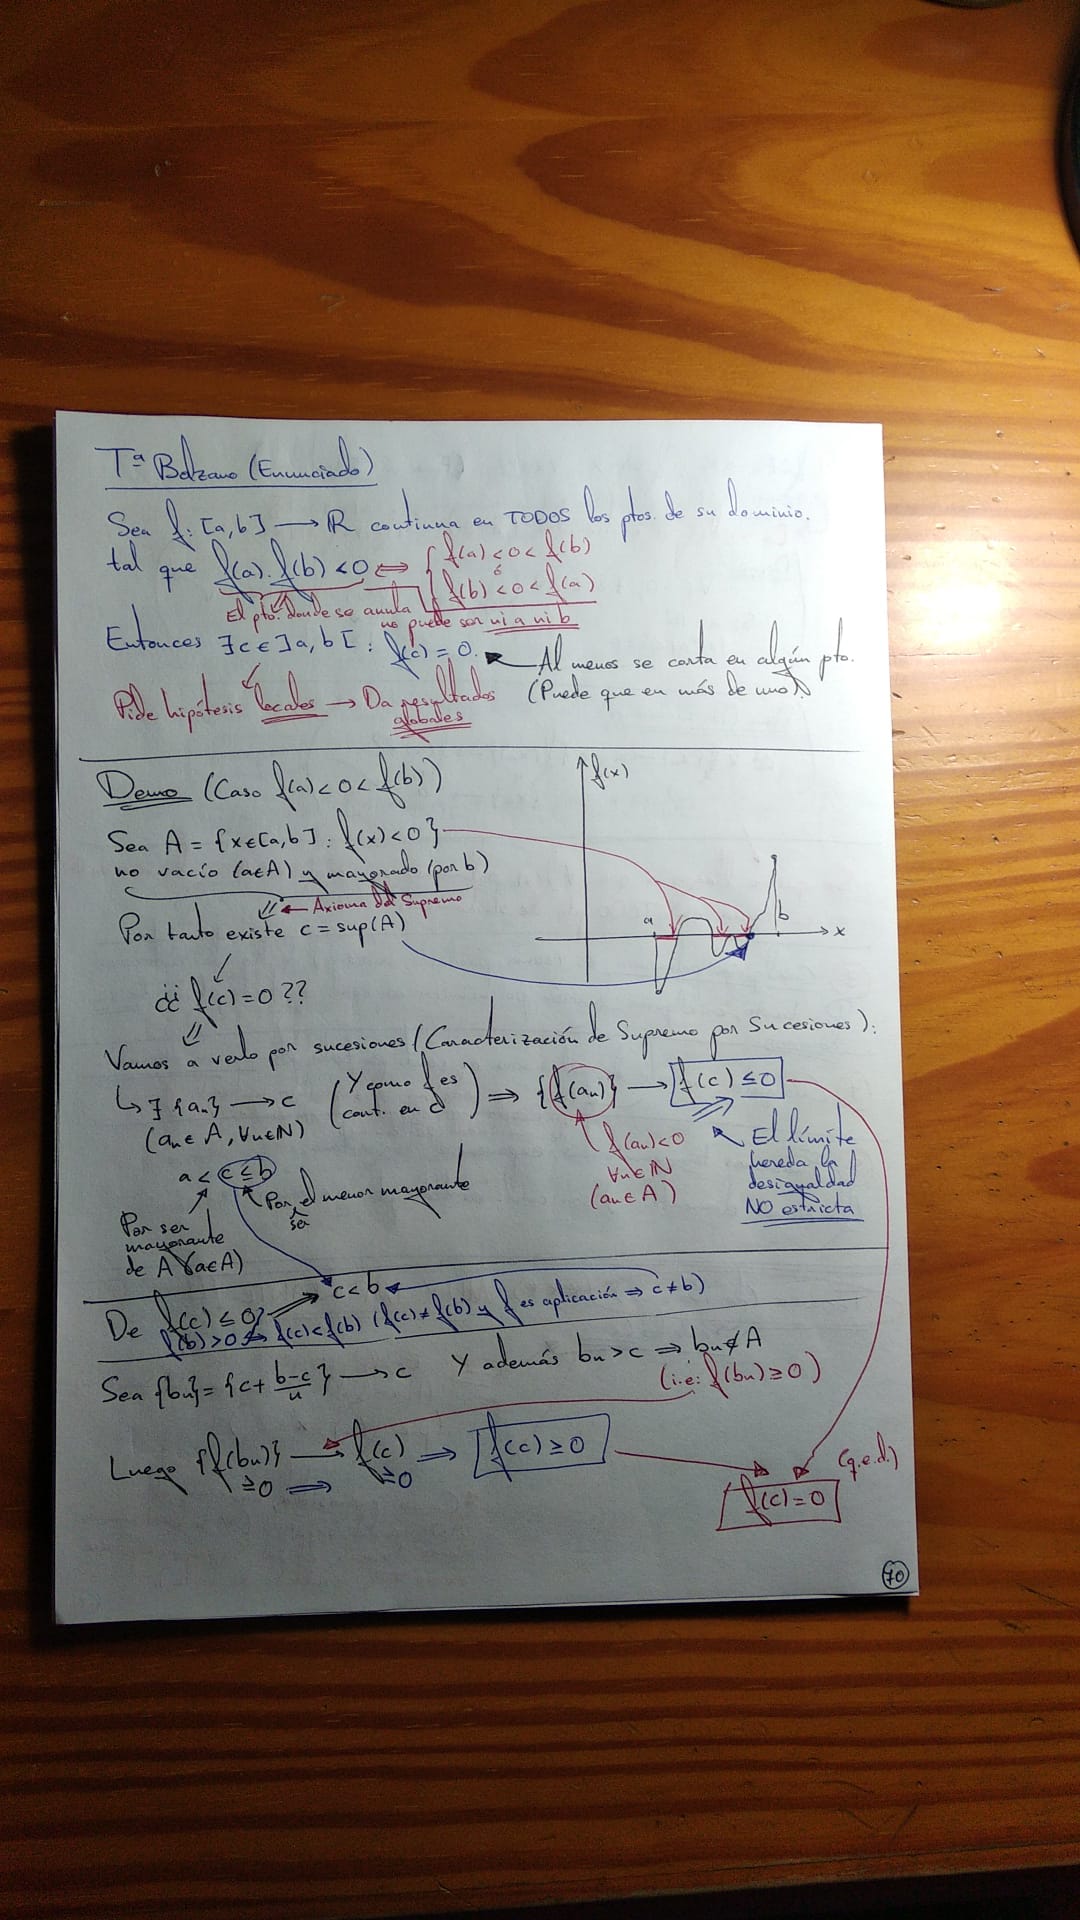 Tª Bolzano (Enunciado)
Sea f: [a,b] → ℝ continua en TODOS los ptos. de su dominio.
tal que f(a).f(b) < 0 ⇔ { f(a) < 0 < f(b)
ó
f(b) < 0 < f(a)
El pto. donde se anula
no puede ser ni a ni b
Entonces ∃ c ∈ ]a,b[ : f(c) = 0.
Al menos se corta en algún pto.
(Puede que en más de uno).
Pide hipótesis locales → Da resultados
globales
Demo (Caso f(a) < 0 < f(b))
f(x)
Sea A = {x ∈ [a,b] : f(x) < 0}
no vacío (a∈A) y mayorado (por b)
⇓ ← Axioma del Supremo
Por tanto existe c = sup(A)
a
b
x
¿¿ f(c) = 0 ??
Vamos a verlo por sucesiones (Caracterización de Supremo por Sucesiones):
↳ ∃ {an} → c (Y como f es cont. en c) ⇒ {f(an)} → f(c) ≤ 0
(an ∈ A, ∀n∈ℕ)
f(an) < 0
∀n∈ℕ
(an ∈ A)
El límite
hereda la
desigualdad
NO estricta
a < c ≤ b
Por ser el menor mayorante
Por ser
mayorante
de A (a∈A)
c < b
De f(c) ≤ 0
f(b) > 0 ⇒ f(c) < f(b) (f(c) ≠ f(b) y f es aplicación ⇒ c ≠ b)
Sea {bn} = {c + b-c/n} → c Y además bn > c ⇒ bn ∉ A
(i.e: f(bn) ≥ 0)
Luego {f(bn)} → f(c) ⇒ f(c) ≥ 0
≥0 ⇒ ≥0
(q.e.d.)
f(c) = 0
70